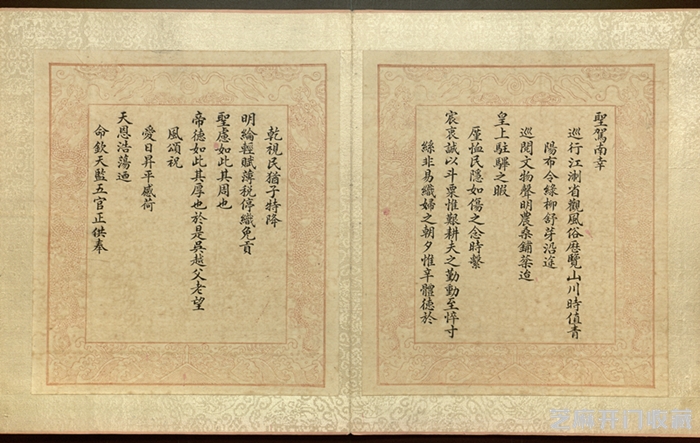 聖駕南幸
巡行江浙省觀風俗歷覽山川時值青
陽布令綠柳舒芽沿途
巡閱文物聲明農桑鋪菜迨
皇上駐驆之暇
厪恤民隱如傷之念時繫
宸衷誠以斗粟惟艱耕夫之勤動至悴寸
絲非易織婦之朝夕惟辛體德於
乾視民猶子特降
明綸輕賦薄稅停織免貢
聖慮如此其周也
帝德如此其厚也於是吳越父老望
風頌祝
愛日昇平感荷
天恩浩蕩迺
命欽天監五官正供奉
芝麻开门收藏